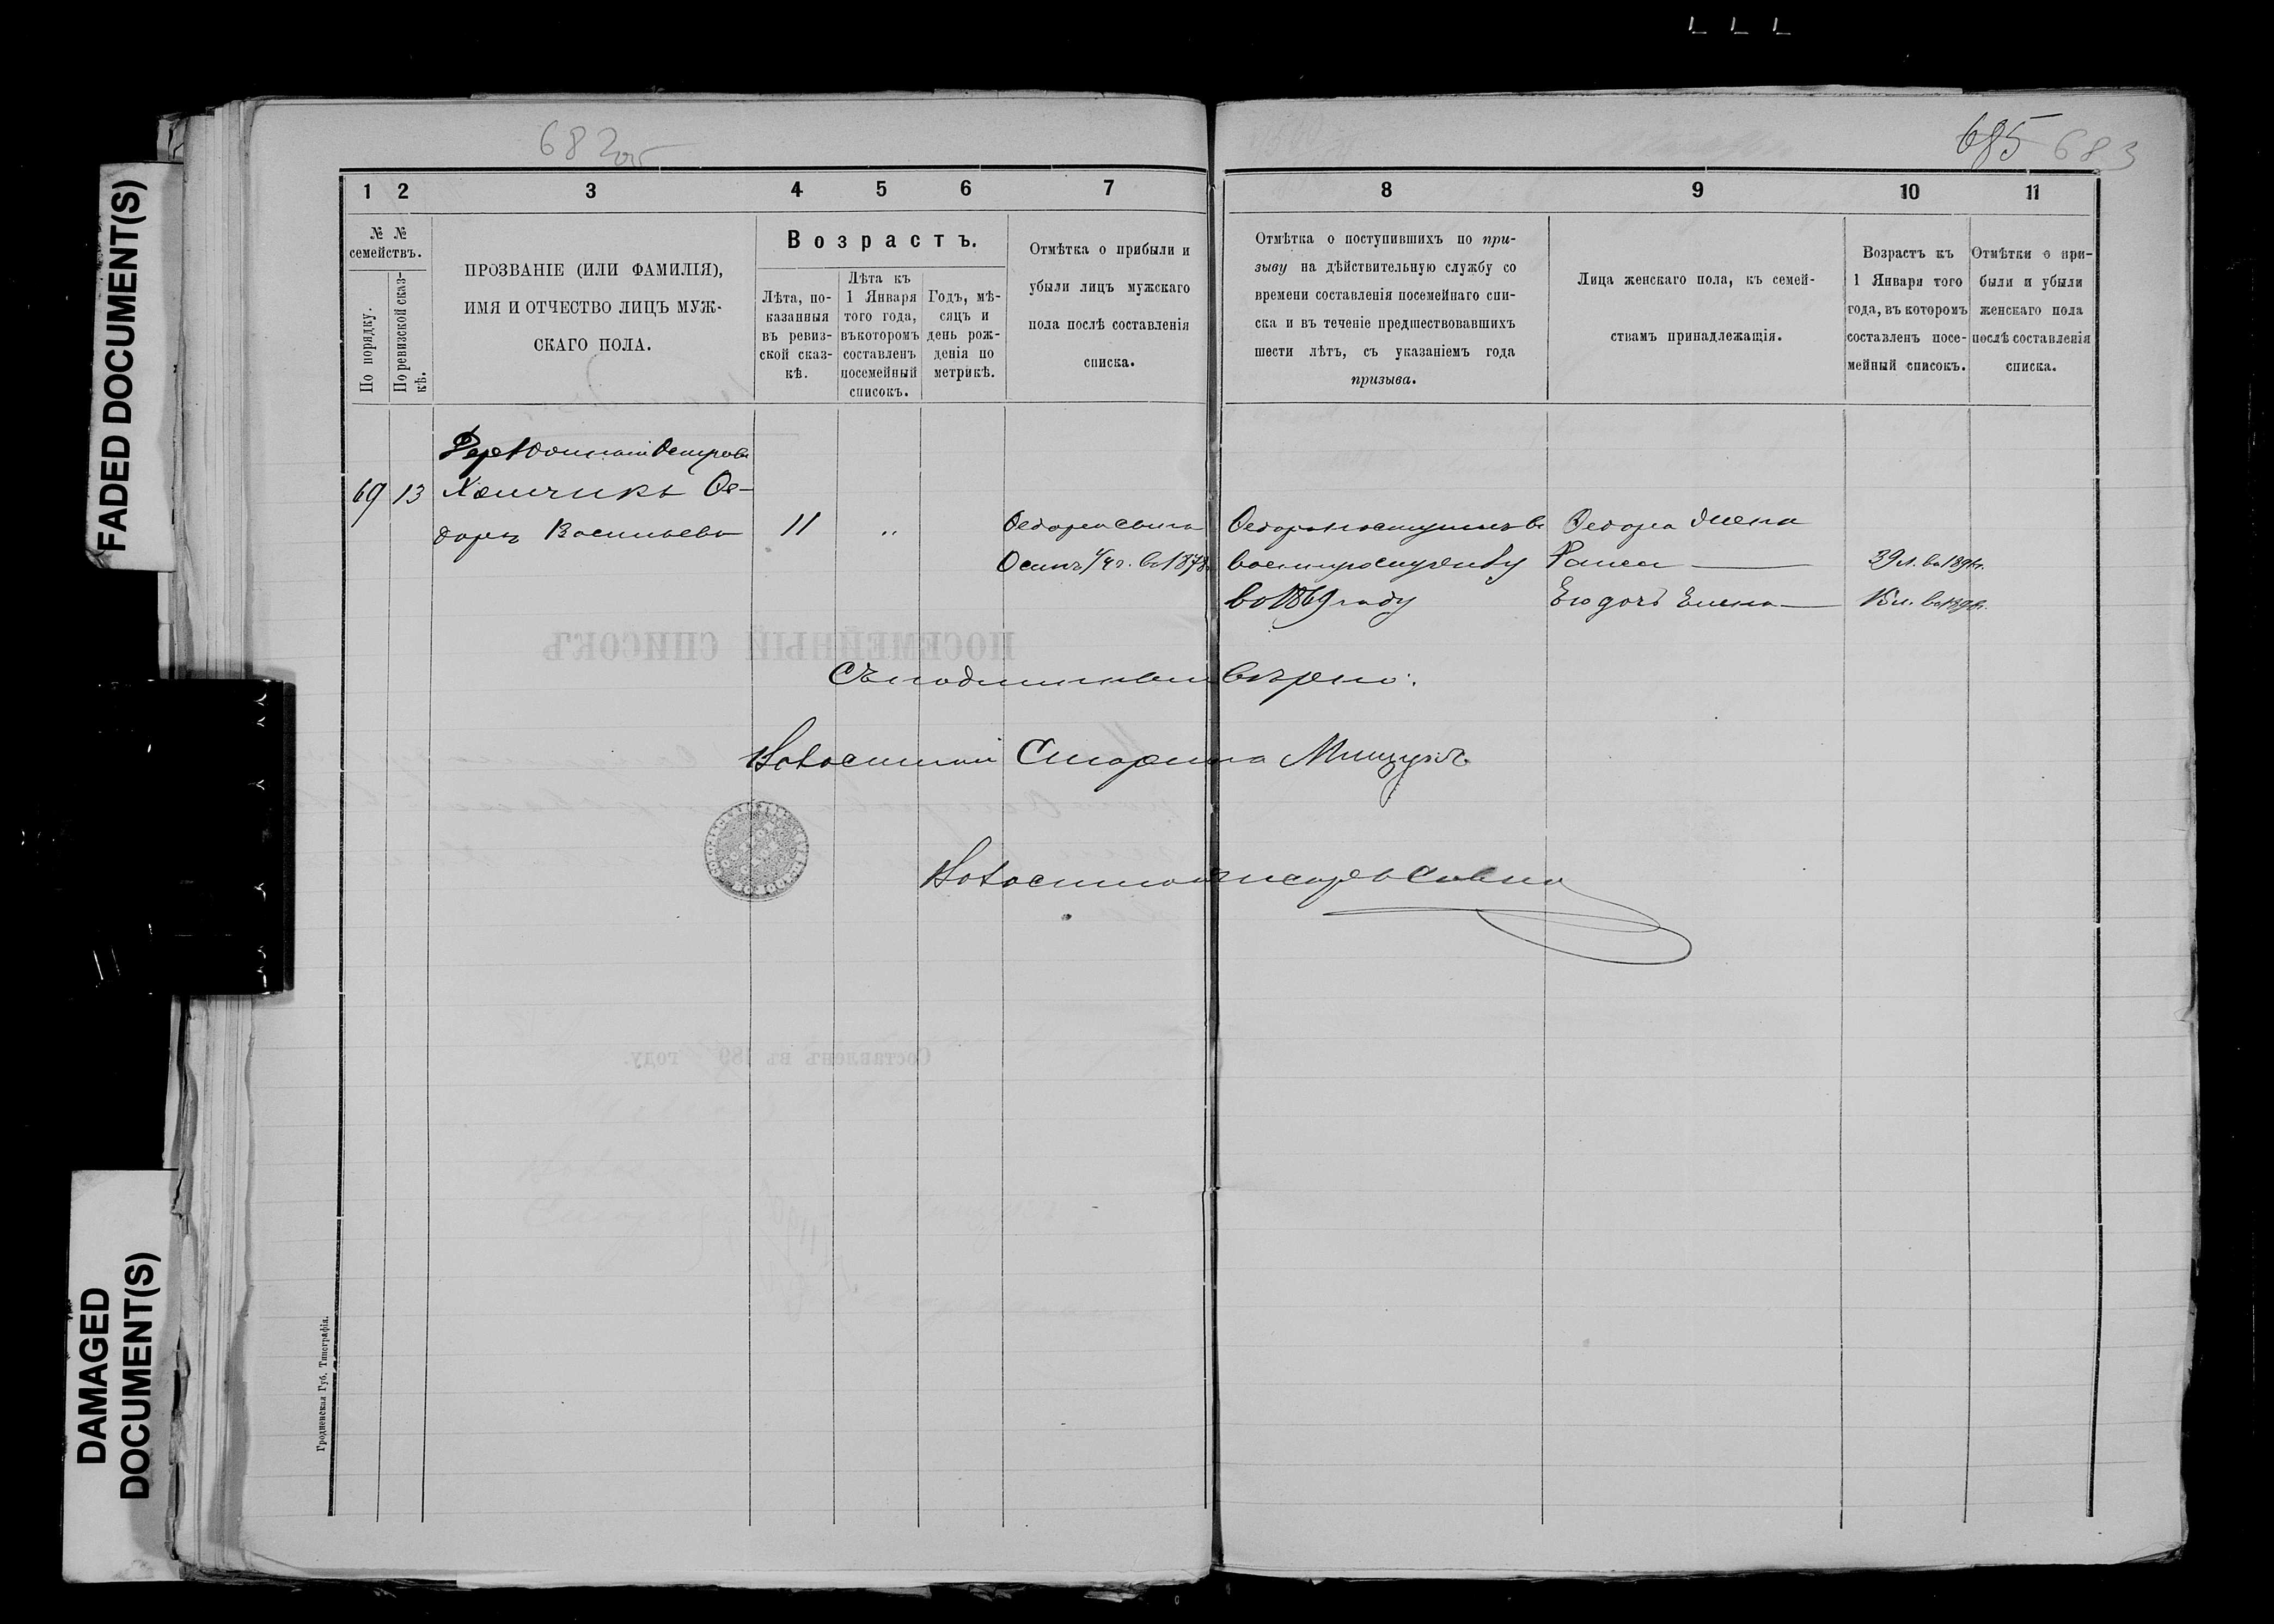 FADED DOCUMENT(S)
DAMAGED
DOCUMENT(S)
682 об
685 683
1 2 3 4 5 6 7 8 9 10 11
№ №
семействъ.
По порядку.
По ревизской сказ-
кѣ.
ПРОЗВАНІЕ (ИЛИ ФАМИЛІЯ),
ИМЯ И ОТЧЕСТВО ЛИЦЪ МУЖ-
СКАГО ПОЛА.
Возрастъ.
Лѣта, по-
казанныя
въ ревиз-
ской сказ-
кѣ.
Лѣта къ
1 Января
того года,
въ которомъ
составленъ
посемейный
списокъ.
Годъ, мѣ-
сяцъ и
день рож-
денія по
метрикѣ.
Отмѣтка о прибыли и
убыли лицъ мужскаго
пола послѣ составленія
списка.
Отмѣтка о поступившихъ по при-
зыву на дѣйствительную службу со
времени составленія посемейнаго спи-
ска и въ теченіе предшествовавшихъ
шести лѣтъ, съ указаніемъ года
призыва.
Лица женскаго пола, къ семей-
ствамъ принадлежащія.
Возрастъ къ
1 Января того
года, въ которомъ
составленъ посе-
мейный списокъ.
Отмѣтки о при-
были и убыли
женскаго пола
послѣ составленія
списка.
69 13
Ѳе-
доръ Васильевъ 11 „
Ѳедора сынъ
Осипъ
Ѳедоръ поступилъ въ
военную службу
въ 1869 году
Ѳедора жена
39 л.
Его дочь Елена
15 л.
Съ подлиннымъ вѣрно:
Волостной Старшина
Волостной писарь
Гродненская Губ. Типографія.
ПОСЕМЕЙНЫЙ СПИСОКЪ
Составленъ въ 189 году.